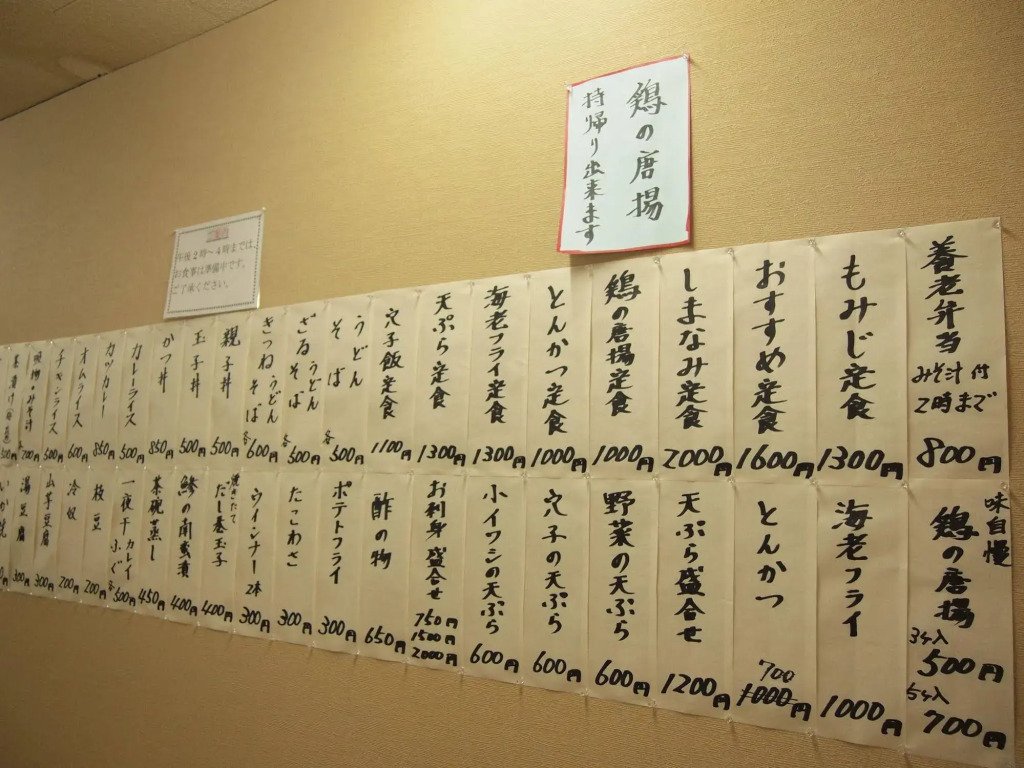 鶏の唐揚
持帰り出来ます
午後2時〜4時までは、
お食事は準備中です。
ご了承ください。
養老弁当
みそ汁付
2時まで
800円
もみじ定食
1300円
おすすめ定食
1600円
しまなみ定食
2000円
鶏の唐揚定食
1000円
とんかつ定食
1000円
海老フライ定食
1300円
天ぷら定食
1300円
穴子飯定食
1100円
うどん
そば
各500円
ざるうどん
そば
各500円
きつねうどん
そば
各600円
親子丼
500円
玉子丼
500円
かつ丼
850円
カレーライス
500円
カツカレー
850円
オムライス
600円
チキンライス
500円
味自慢
鶏の唐揚
3ヶ入
500円
5ヶ入
700円
海老フライ
1000円
とんかつ
700
1000円
天ぷら盛合せ
1200円
野菜の天ぷら
600円
穴子の天ぷら
600円
小イワシの天ぷら
600円
お刺身盛合せ
750円
1500円
2000円
酢の物
650円
ポテトフライ
300円
たこわさ
300円
ウインナー
2本
300円
焼きたて
だし巻玉子
400円
鯵の南蛮漬
400円
茶碗蒸し
450円
一夜干カレイ
ふぐ
各500円
枝豆
200円
冷奴
200円
山芋豆腐
300円
湯豆腐
300円